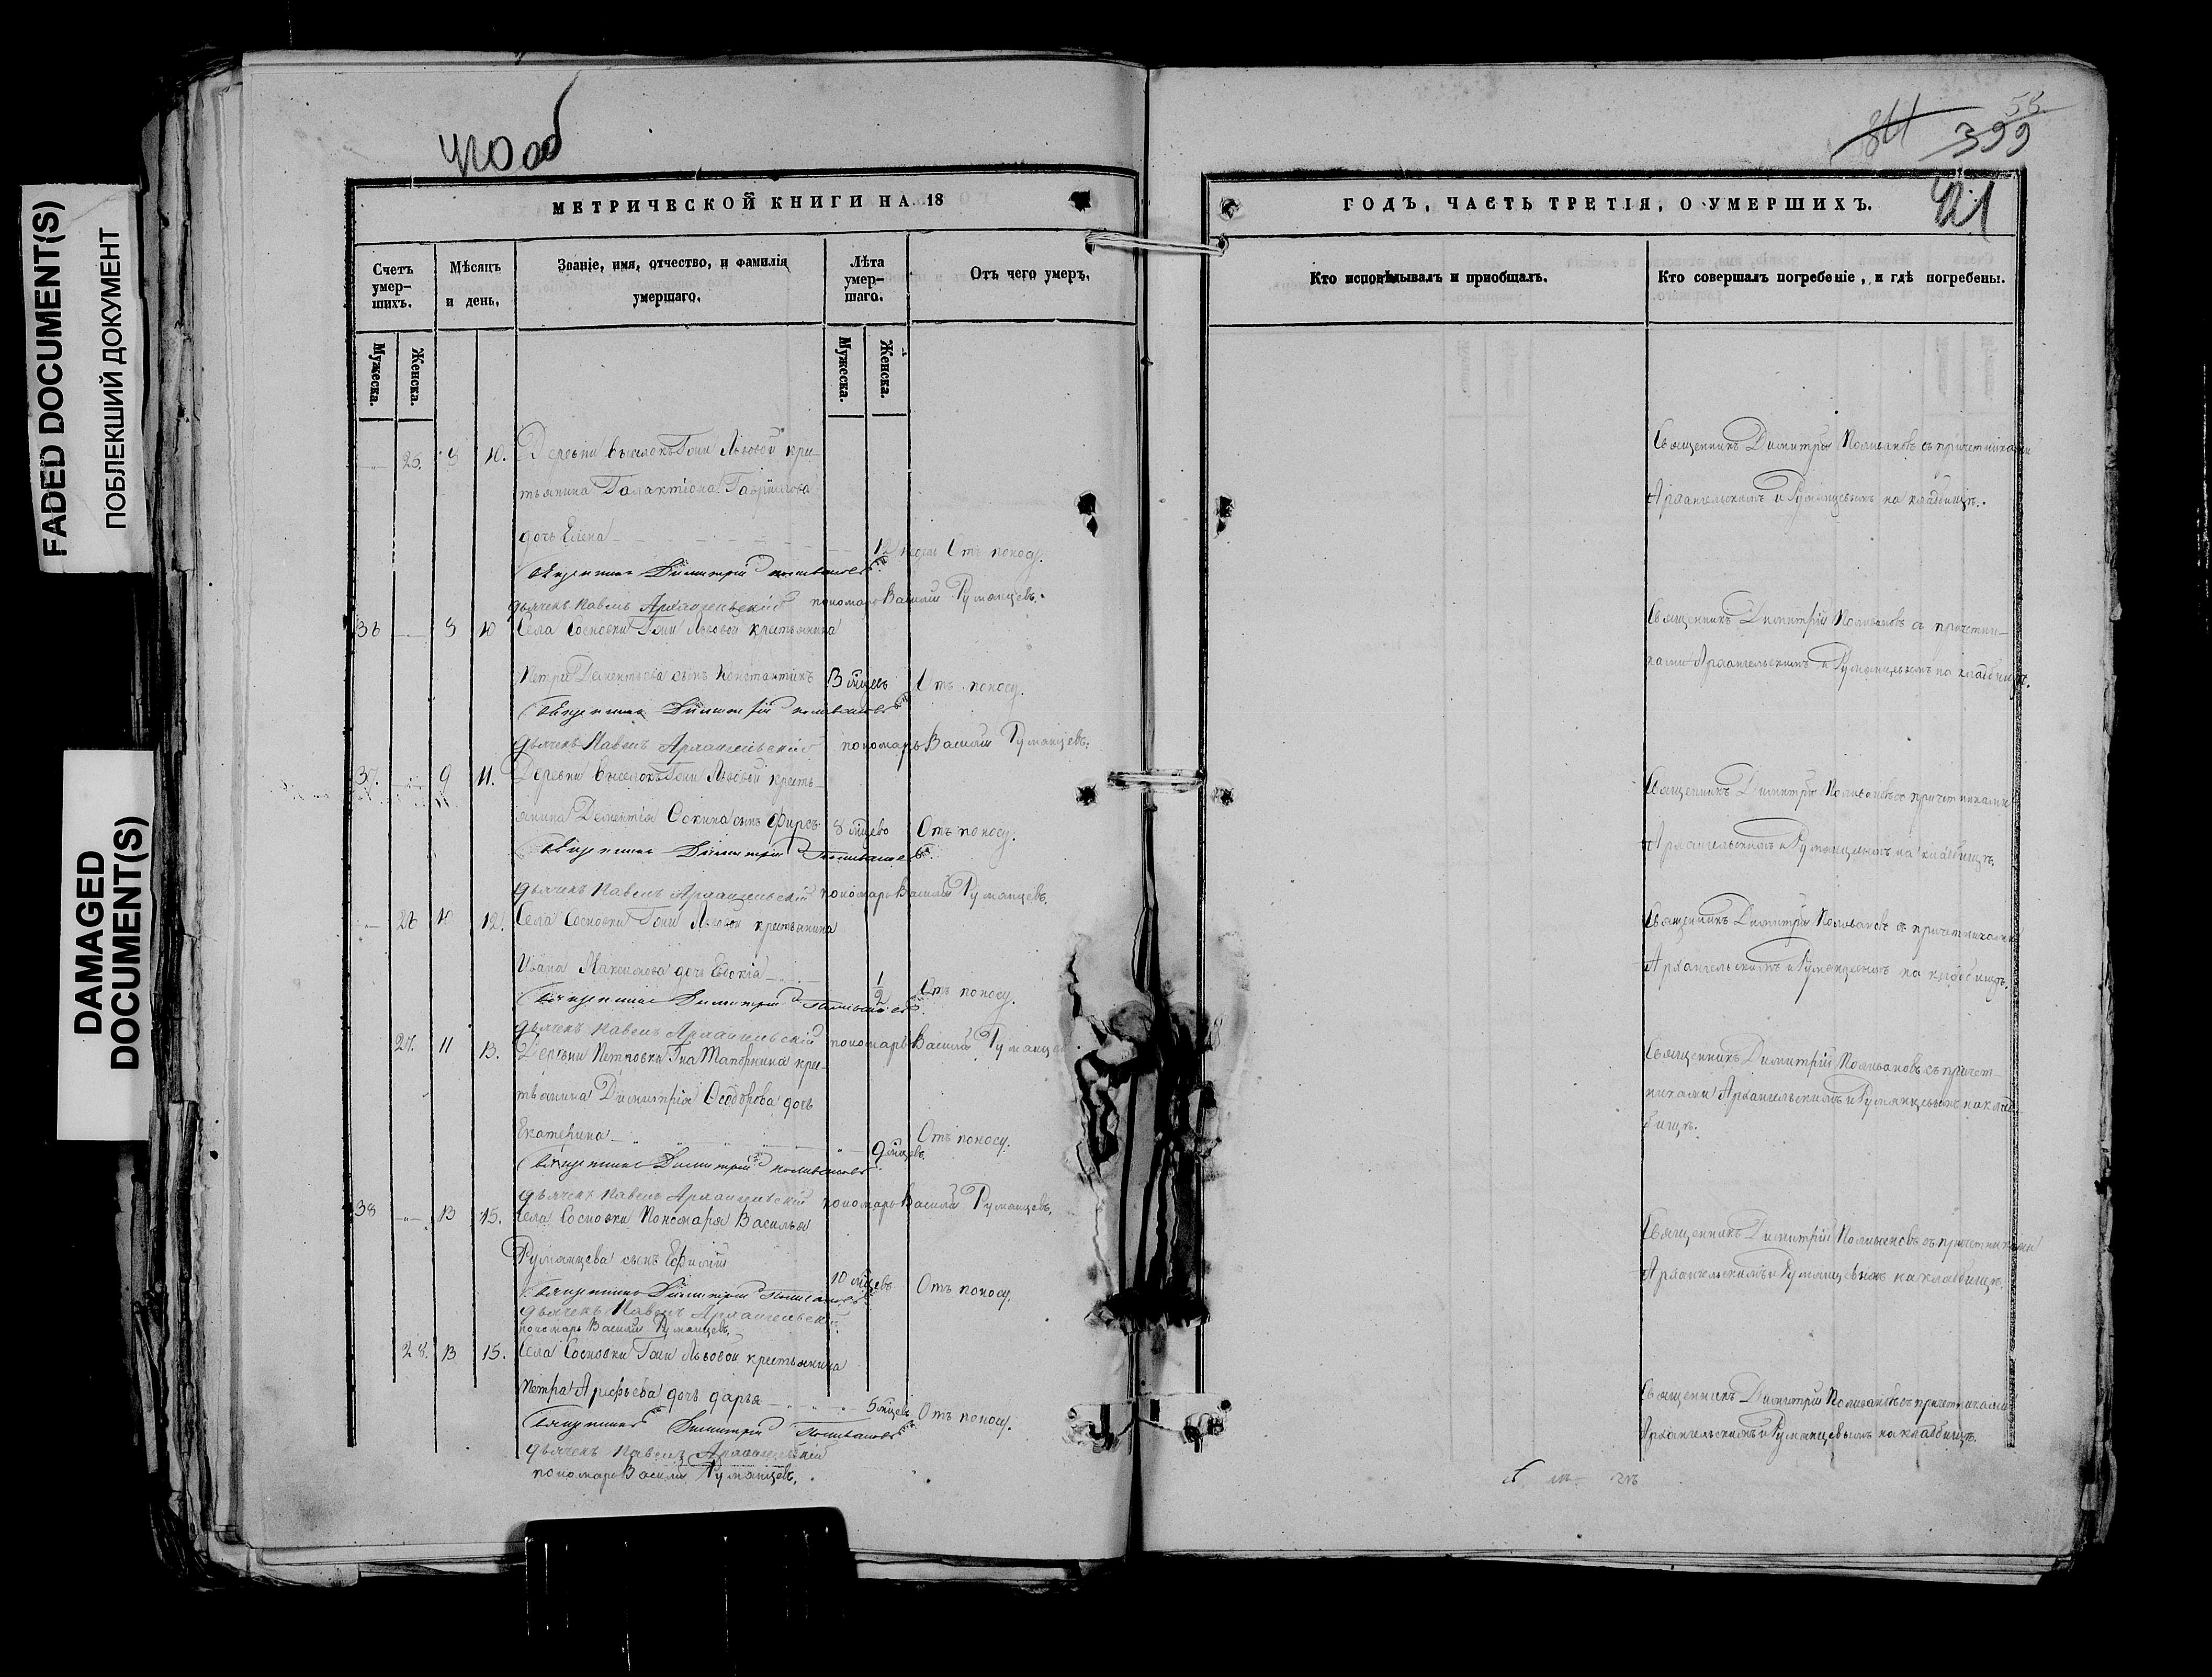 FADED DOCUMENT(S)
ПОБЛЕКШИЙ ДОКУМЕНТ
DAMAGED
DOCUMENT(S)
420об
МЕТРИЧЕСКОЙ КНИГИ НА 18
Счетъ умер-шихъ.
Мѣсяцъ и день.
Званіе, имя, отчество, и фамилія умершаго.
Лѣта умер-шаго.
Отъ чего умеръ.
Мужеска.
Женска.
Мужеска.
Женска.
25. 8 10. Деревни Выселокъ Гжи Львовой кре-
стьянина Галактіона Гаврилова
дочь Елена 12 недѣл Отъ поносу.
Священникъ Димитрій Поливановъ
дьячекъ Павелъ Архангельскій пономарь Василій Румянцевъ.
36 8 10 Села Сосновки Гжи Львовой крестьянина
Петра Дементьева сынъ Константинъ 3 мѣсцевъ Отъ поносу.
Священникъ Димитрій Поливановъ
дьячекъ Павелъ Архангельскій пономарь Василій Румянцевъ.
37. 9 11. Деревни Выселокъ Гжи Львовой кресть-
янина Дементія сынъ Фирсъ 8 мѣсцевъ Отъ поносу.
Священникъ Димитрій Поливановъ
дьячекъ Павелъ Архангельскій пономарь Василій Румянцевъ.
26 10 12. Села Сосновки Гжи Львовой крестьянина
Ивана Максимова дочь Евдокія 1/2 Отъ поносу.
Священникъ Димитрій Поливановъ
дьячекъ Павелъ Архангельскій пономарь Василій Румянцевъ
27. 11 13. Деревни Петровки кре-
стьянина Димитрія Ѳеодорова дочь
Екатерина 9 мѣсцевъ Отъ поносу.
Священникъ Димитрій Поливановъ
дьячекъ Павелъ Архангельскій пономарь Василій Румянцевъ.
38 13 15. Села Сосновки Пономаря Василья
Румянцева сынъ Ефимій 10 мѣсцевъ Отъ поносу.
Священникъ Димитрій Поливановъ
дьячекъ Павелъ Архангельскій
пономарь Василій Румянцевъ.
28. 13 15. Села Сосновки Гжи Львовой крестьянина
Петра Арефьева дочь Дарья 5 мѣсцевъ Отъ поносу.
Священникъ Димитрій Поливановъ
дьячекъ Павелъ Архангельскій
пономарь Василій Румянцевъ.
55
399
421
ГОДЪ, ЧАСТЬ ТРЕТІЯ, О УМЕРШИХЪ.
Кто исповѣдывалъ и пріобщалъ.
Кто совершалъ погребеніе, и гдѣ погребены.
Священникъ Димитрій Поливановъ съ причетниками
Архангельскимъ и Румянцевымъ на кладбищѣ.
Священникъ Димитрій Поливановъ съ причетни-
ками Архангельскимъ и Румянцевымъ на кладбищѣ.
Священникъ Димитрій Поливановъ съ причетниками
Архангельскимъ и Румянцевымъ на кладбищѣ.
Священникъ Димитрій Поливановъ съ причетниками
Архангельскимъ и Румянцевымъ на кладбищѣ.
Священникъ Димитрій Поливановъ съ причет-
никами Архангельскимъ и Румянцевымъ на клад-
бищѣ.
Священникъ Димитрій Поливановъ съ причетниками
Архангельскимъ и Румянцевымъ на кладбищѣ.
Священникъ Димитрій Поливановъ съ причетниками
Архангельскимъ и Румянцевымъ на кладбищѣ.